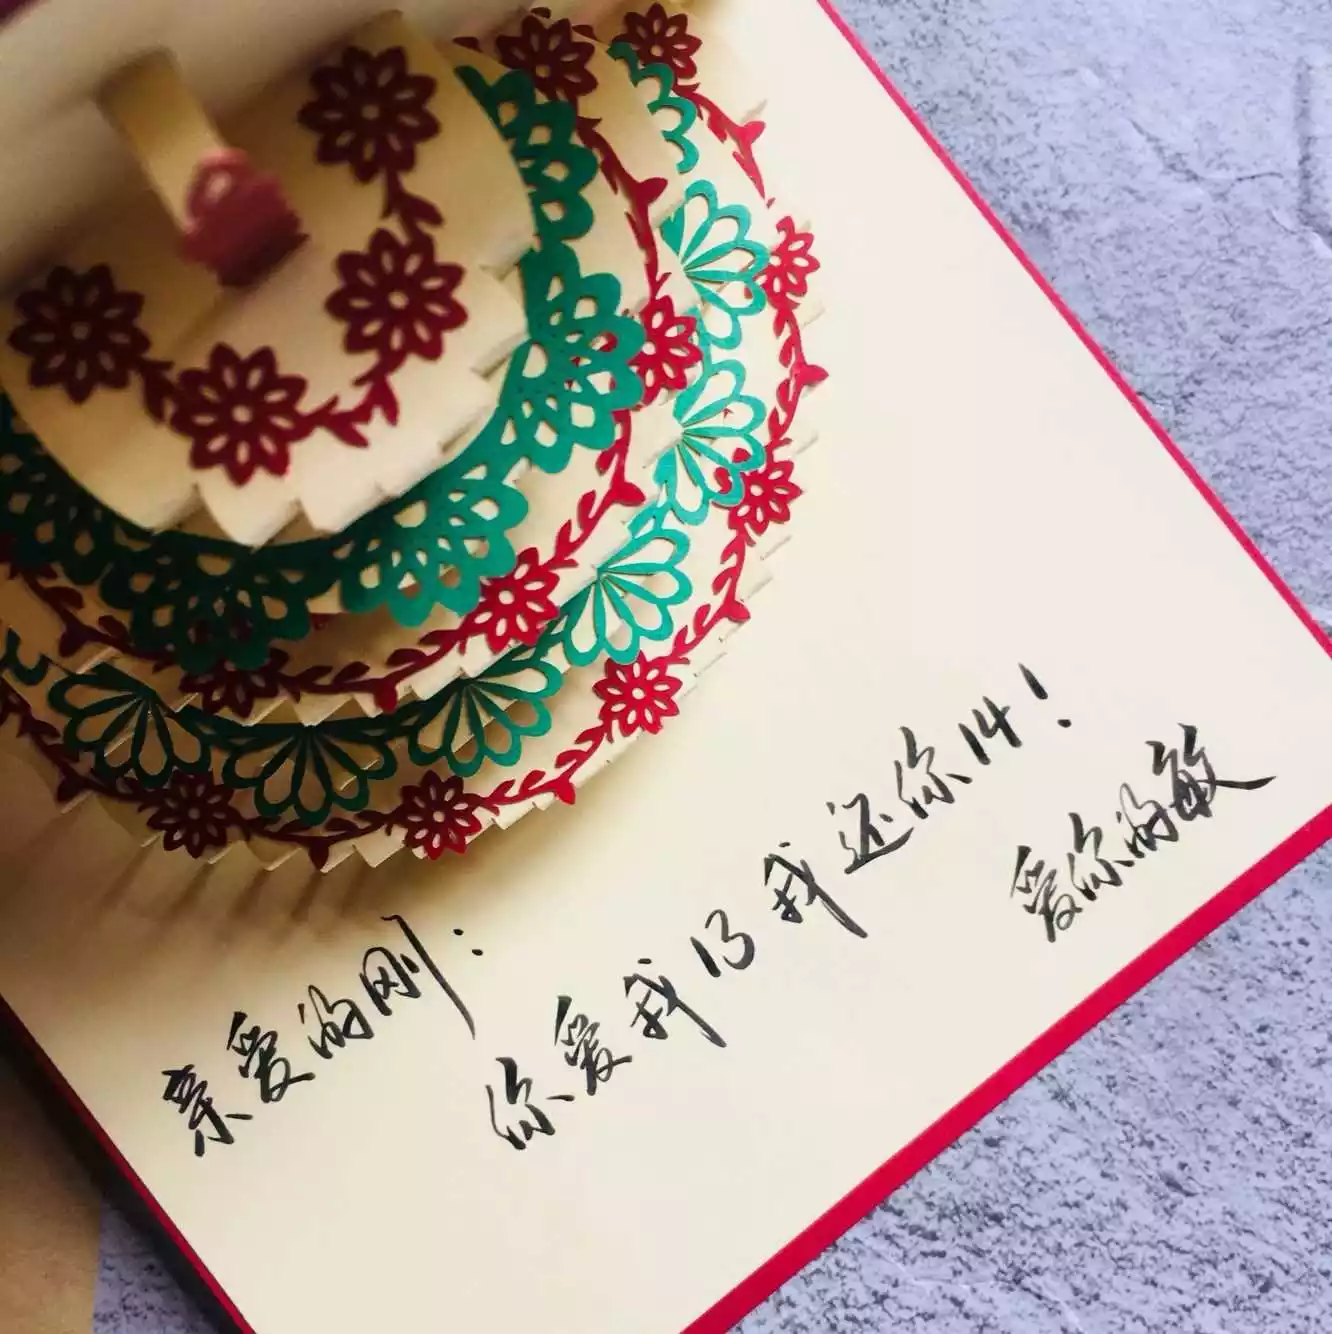 亲爱的刚：
你爱我13我还你14！
爱你的敏